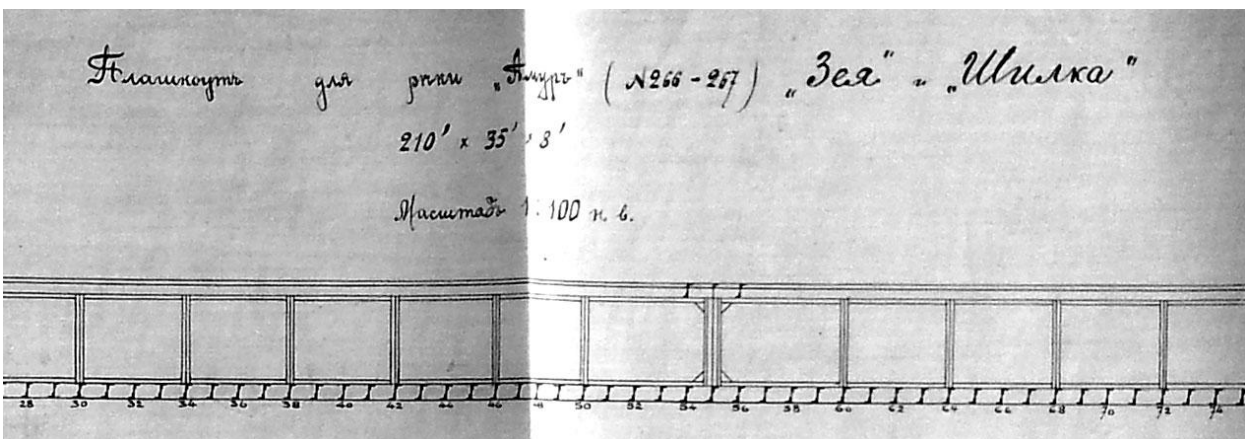 Плашкоутъ для рѣки „Амуръ“ (№266-267) „Зея“ и „Шилка“
210' x 35' x 8'
Масштабъ 1:100 н. в.
28 30 32 34 36 38 40 42 44 46 48 50 52 54 56 58 60 62 64 66 68 70 72 74